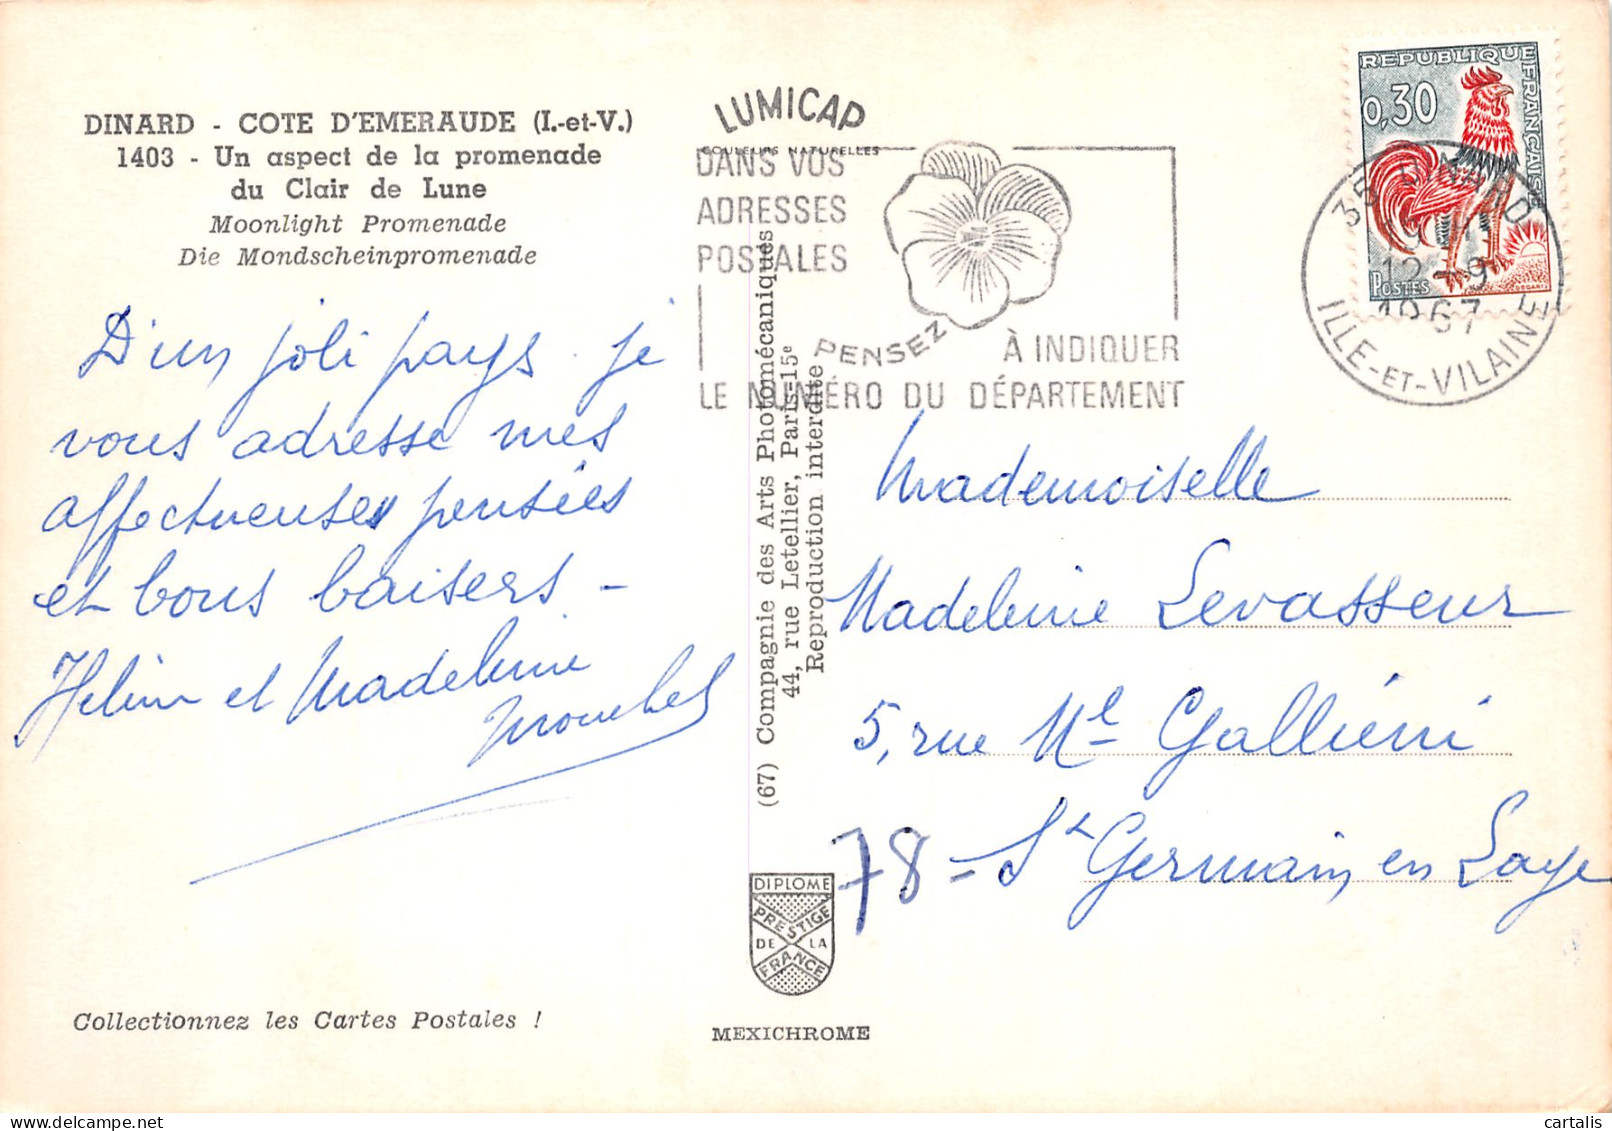 DINARD - COTE D'EMERAUDE (I.-et-V.)
1403 - Un aspect de la promenade
du Clair de Lune
Moonlight Promenade
Die Mondscheinpromenade
D'un joli pays je
vous adresse mes
affectueuses pensées
et bons baisers -
et Madeleine
Collectionnez les Cartes Postales !
LUMICAP
COULEURS NATURELLES
DANS VOS
ADRESSES
POSTALES
PENSEZ
À INDIQUER
LE NUMÉRO DU DÉPARTEMENT
(67) Compagnie des Arts Photomécaniques
44, rue Letellier, Paris-15e
Reproduction interdite
DIPLOME
PRESTIGE
DE LA
FRANCE
MEXICHROME
REPUBLIQUE FRANÇAISE
0,30
POSTES
35 DINARD
12-9
1967
ILLE-ET-VILAINE
Mademoiselle
Madeleine Levasseur
5, rue Mal Galliéni
78 - St Germain en Laye
cartalis